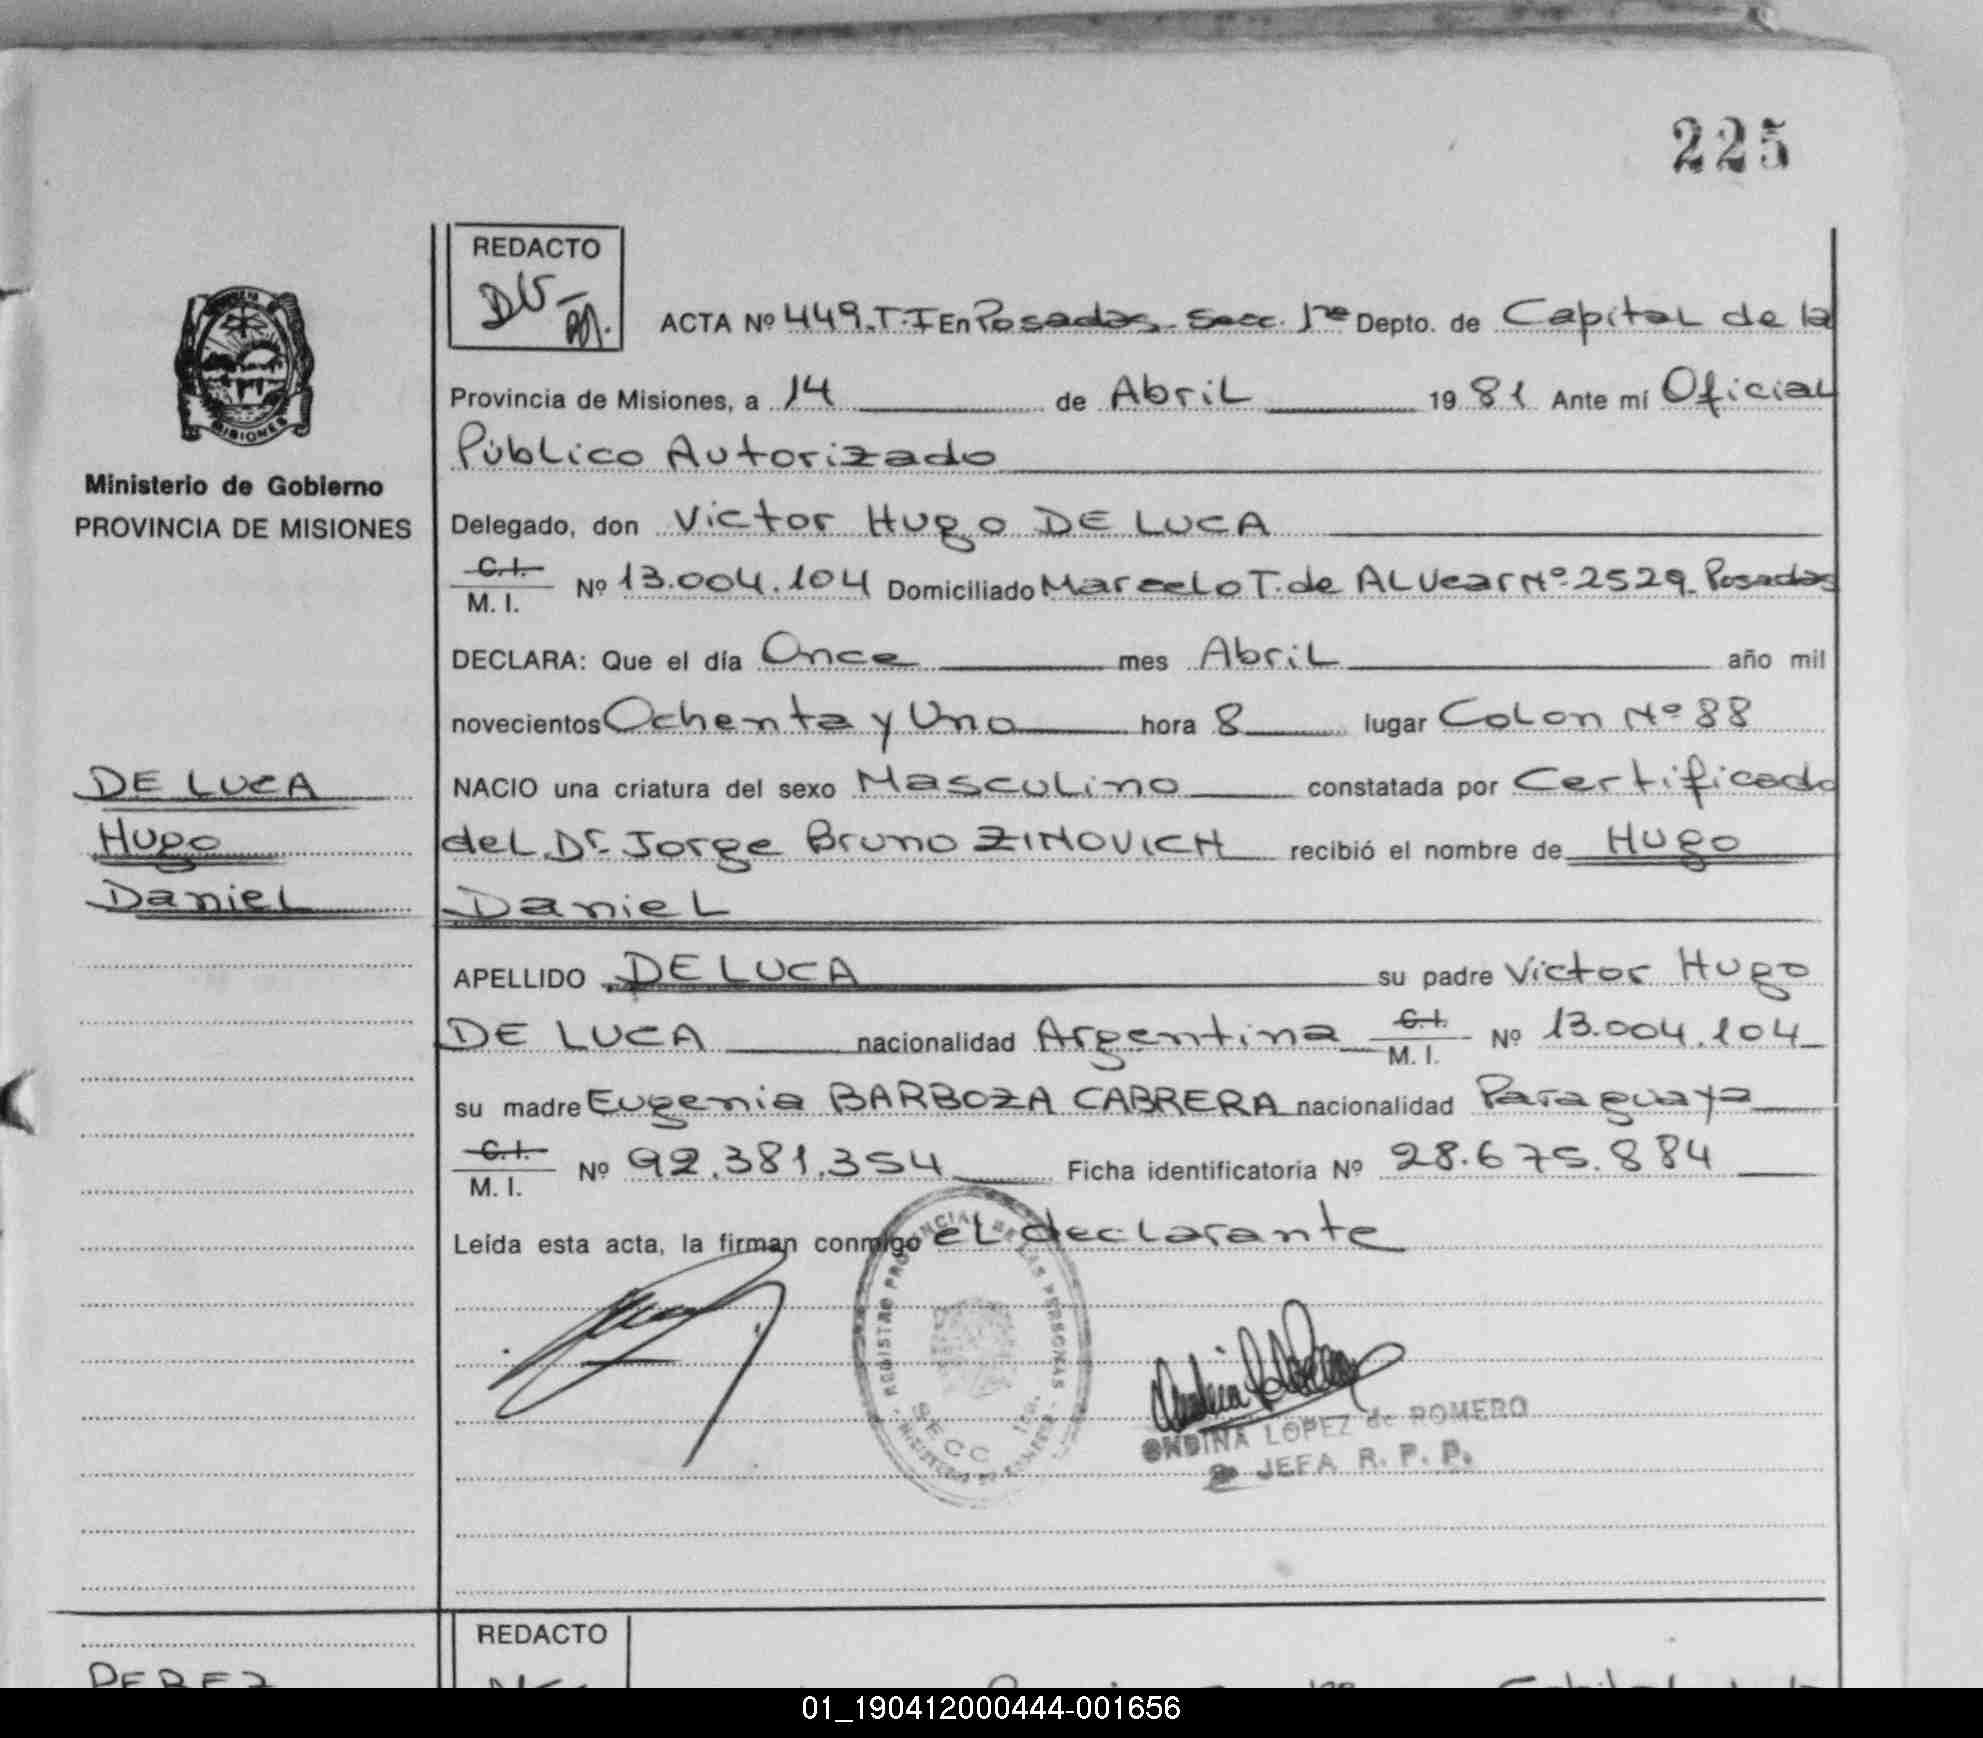 225
REDACTO
ACTA Nº 449.T.I En Posadas Secc. 1ra Depto. de Capital de la
Provincia de Misiones, a 14 de Abril 1981 Ante mí Oficial
Público Autorizado
Ministerio de Gobierno
PROVINCIA DE MISIONES
Delegado, don Victor Hugo DE LUCA
C.I.
M. I. Nº 13.004.104 Domiciliado Marcelo T. de ALVear Nº 2529 Posadas
DECLARA: Que el día Once mes Abril año mil
novecientos Ochenta y Uno hora 8 lugar Colon Nº 88
DE LUCA
Hugo
Daniel
NACIO una criatura del sexo Masculino constatada por Certificado
del Dr. Jorge Bruno ZINOVICH recibió el nombre de Hugo
Daniel
APELLIDO DE LUCA su padre Victor Hugo
DE LUCA nacionalidad Argentina C.I. M. I. Nº 13.004.104
su madre Eugenia BARBOZA CABRERA nacionalidad Paraguaya
C.I.
M. I. Nº 92.381.354 Ficha identificatoria Nº 28.675.884
Leída esta acta, la firman conmigo el declarante
REGISTRO PROVINCIAL DE LAS PERSONAS
SECC 1ra.
ONDINA LOPEZ de ROMERO
JEFA R. P. P.
REDACTO
PEREZ
01_190412000444-001656